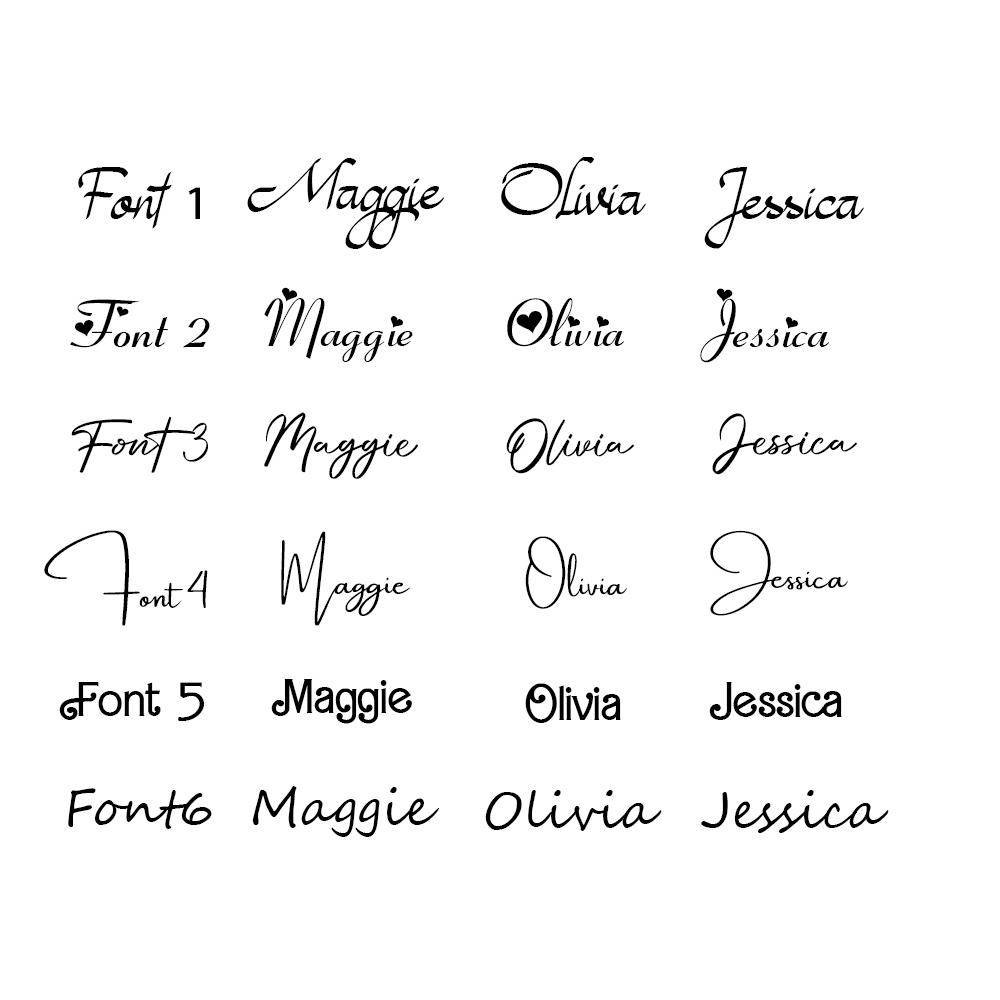 Font 1 Maggie Olivia Jessica
Font 2 Maggie Olivia Jessica
Font 3 Maggie Olivia Jessica
Font 4 Maggie Olivia Jessica
Font 5 Maggie Olivia Jessica
Font6 Maggie Olivia Jessica